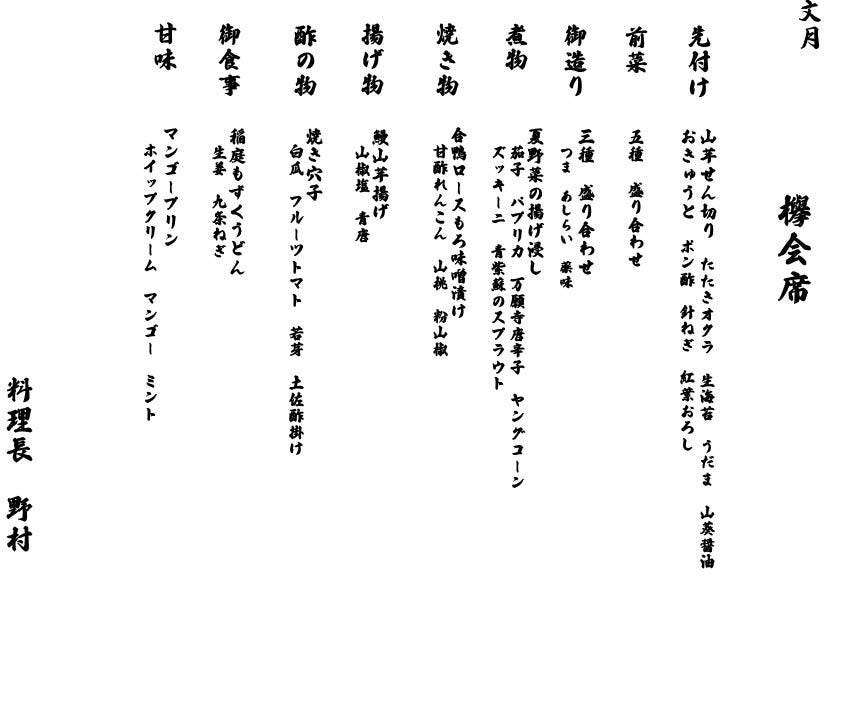 文月
欅会席
先付け
山芋せん切り たたきオクラ 生海苔 うだま 山葵醤油
おきゅうと ポン酢 針ねぎ 紅葉おろし
前菜
五種 盛り合わせ
御造り
三種 盛り合わせ
つま あしらい 薬味
煮物
夏野菜の揚げ浸し
茄子 パプリカ 万願寺唐辛子 ヤングコーン
ズッキーニ 青紫蘇のスプラウト
焼き物
合鴨ロースもろ味噌漬け
甘酢れんこん 山桃 粉山椒
揚げ物
鰻山芋揚げ
山椒塩 青唐
酢の物
焼き穴子
白瓜 フルーツトマト 若芽 土佐酢掛け
御食事
稲庭もずくうどん
生姜 九条ねぎ
甘味
マンゴープリン
ホイップクリーム マンゴー ミント
料理長 野村